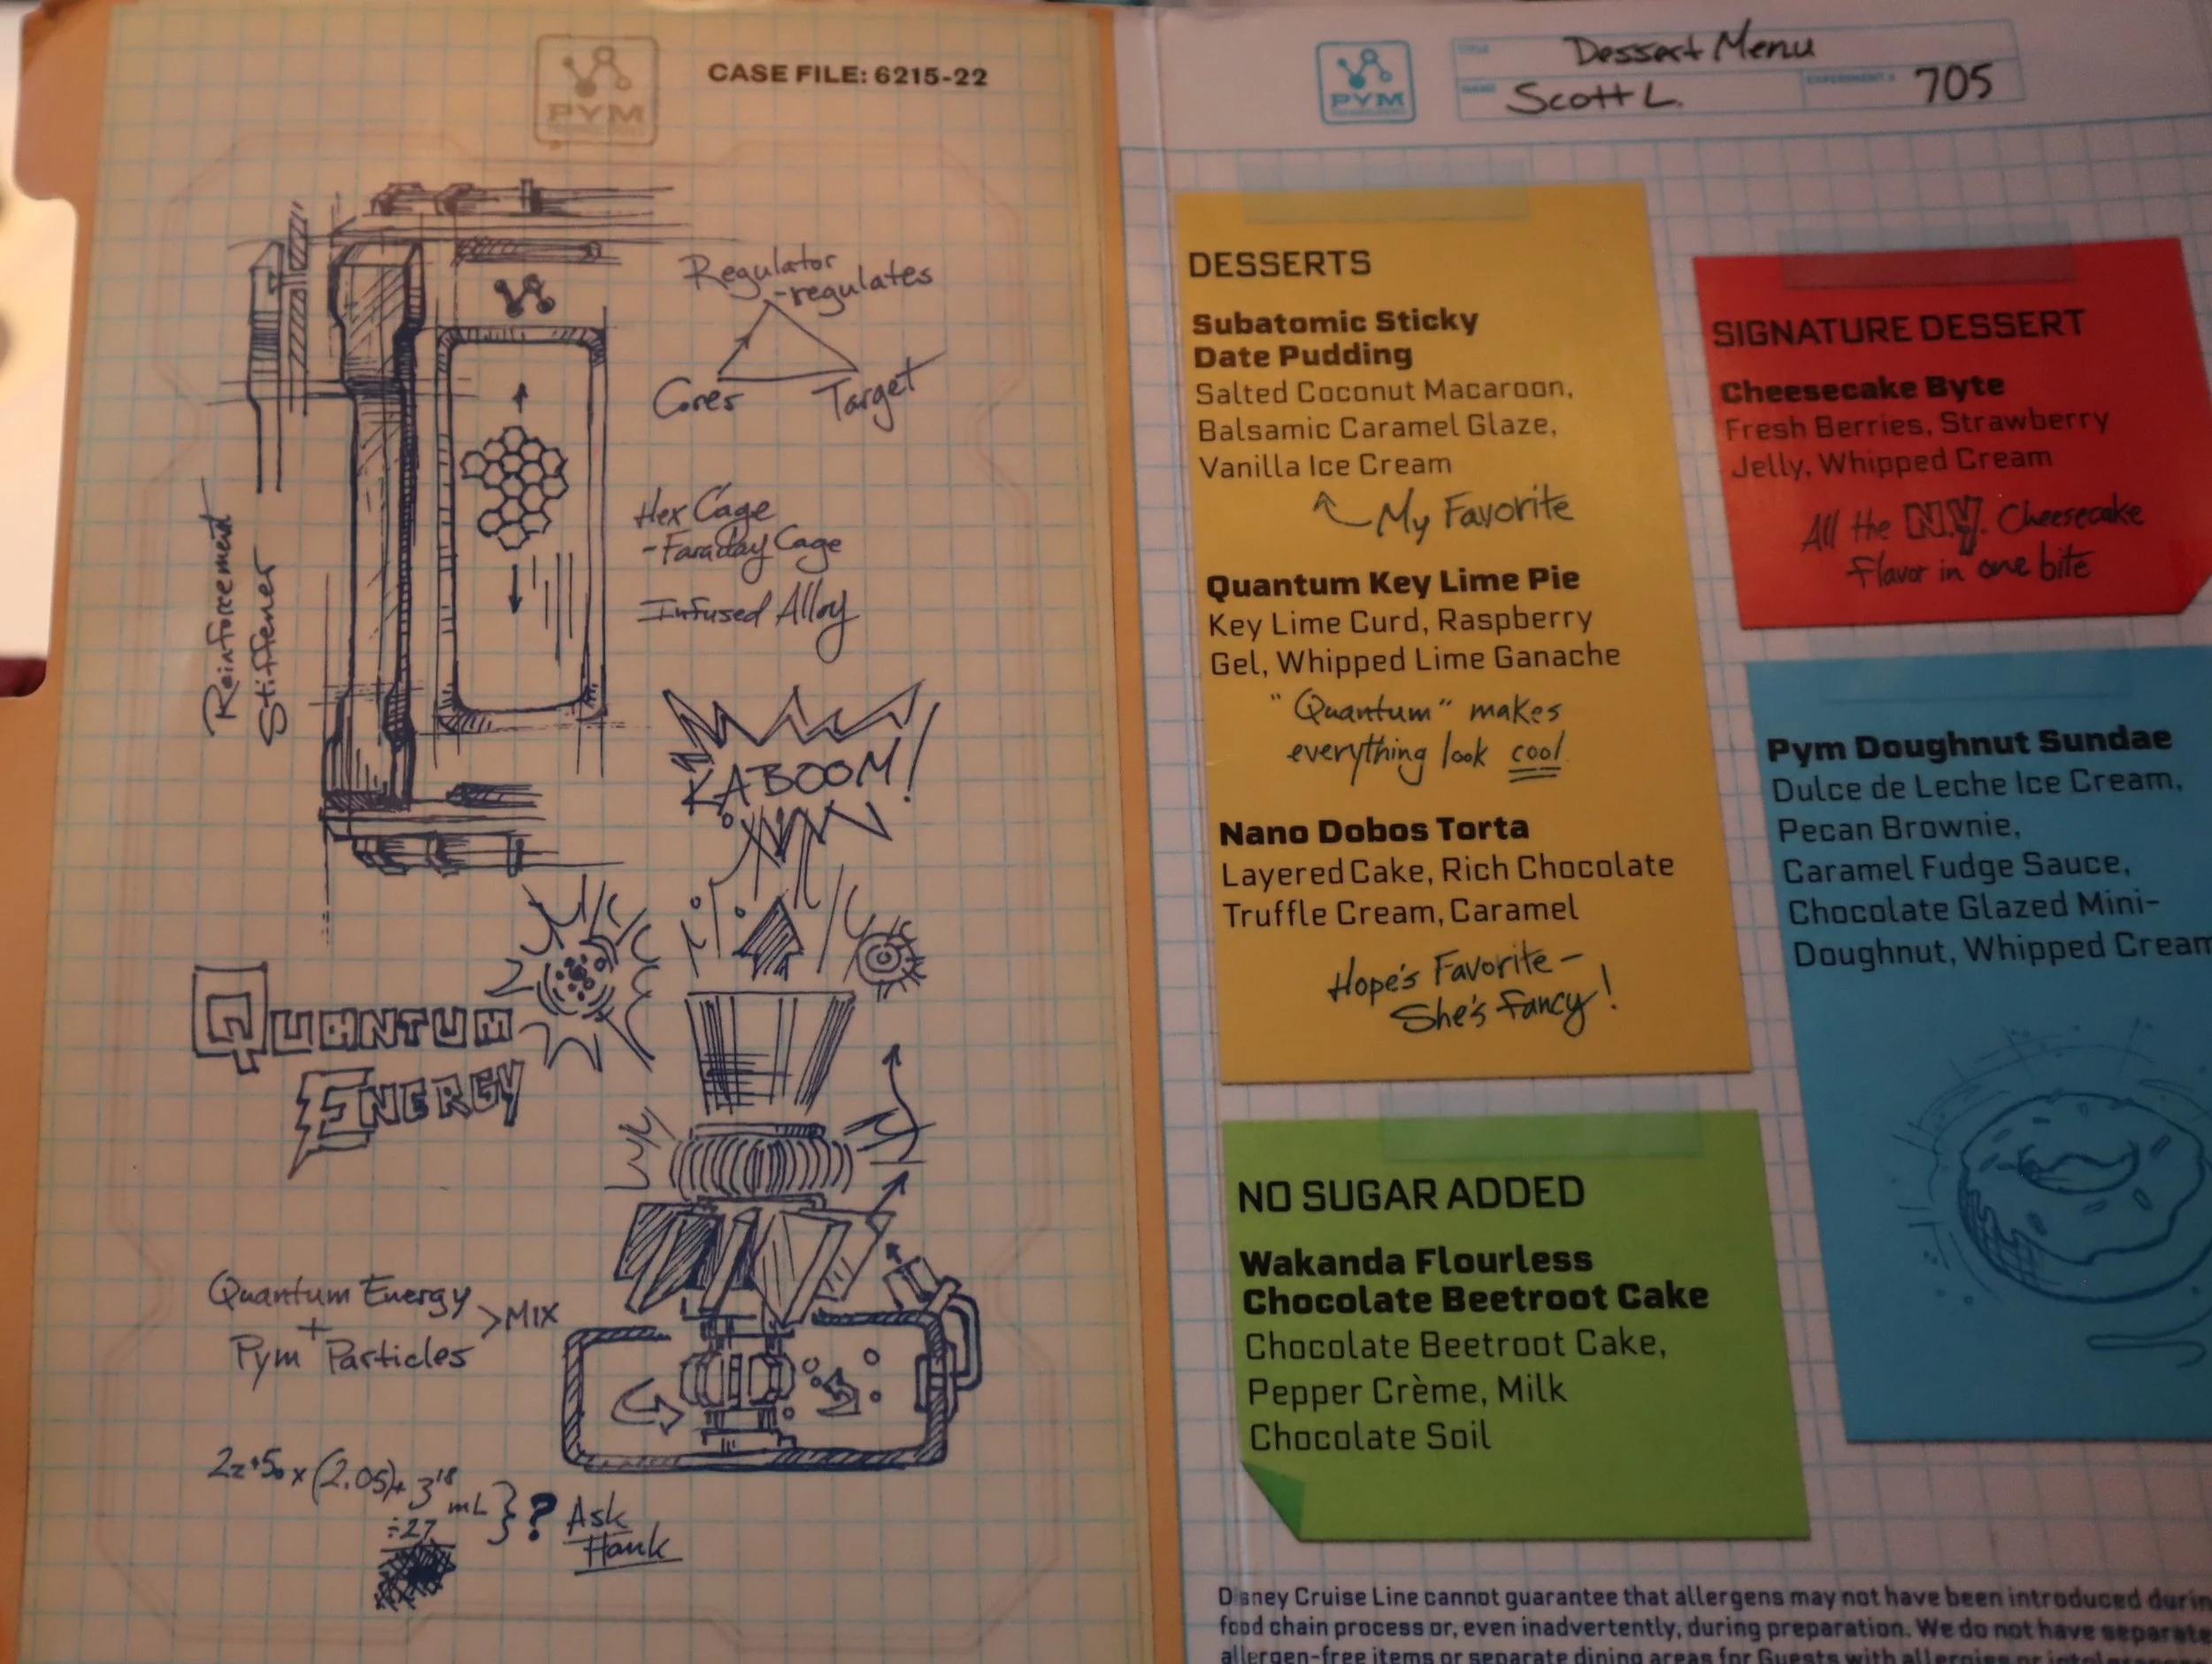 PYM
CASE FILE: 6215-22
Regulator
-regulates
Cores
Target
Hex Cage
-Faraday Cage
Infused Alloy
Reinforcement
Stiffener
KABOOM!
QUANTUM
ENERGY
Quantum Energy
+
Pym Particles
>MIX
mL
÷27
? Ask
Hank
PYM
TITLE
Dessert Menu
NAME
Scott L.
EXPERIMENT #
705
DESSERTS
Subatomic Sticky
Date Pudding
Salted Coconut Macaroon,
Balsamic Caramel Glaze,
Vanilla Ice Cream
My Favorite
Quantum Key Lime Pie
Key Lime Curd, Raspberry
Gel, Whipped Lime Ganache
"Quantum" makes
everything look cool.
Nano Dobos Torta
Layered Cake, Rich Chocolate
Truffle Cream, Caramel
Hope's Favorite-
She's fancy!
SIGNATURE DESSERT
Cheesecake Byte
Fresh Berries, Strawberry
Jelly, Whipped Cream
All the N.Y. Cheesecake
flavor in one bite
Pym Doughnut Sundae
Dulce de Leche Ice Cream,
Pecan Brownie,
Caramel Fudge Sauce,
Chocolate Glazed Mini-
Doughnut, Whipped Cream
NO SUGAR ADDED
Wakanda Flourless
Chocolate Beetroot Cake
Chocolate Beetroot Cake,
Pepper Crème, Milk
Chocolate Soil
Disney Cruise Line cannot guarantee that allergens may not have been introduced durin
food chain process or, even inadvertently, during preparation. We do not have separate
allergen-free items or separate dining areas for Guests with allergies or